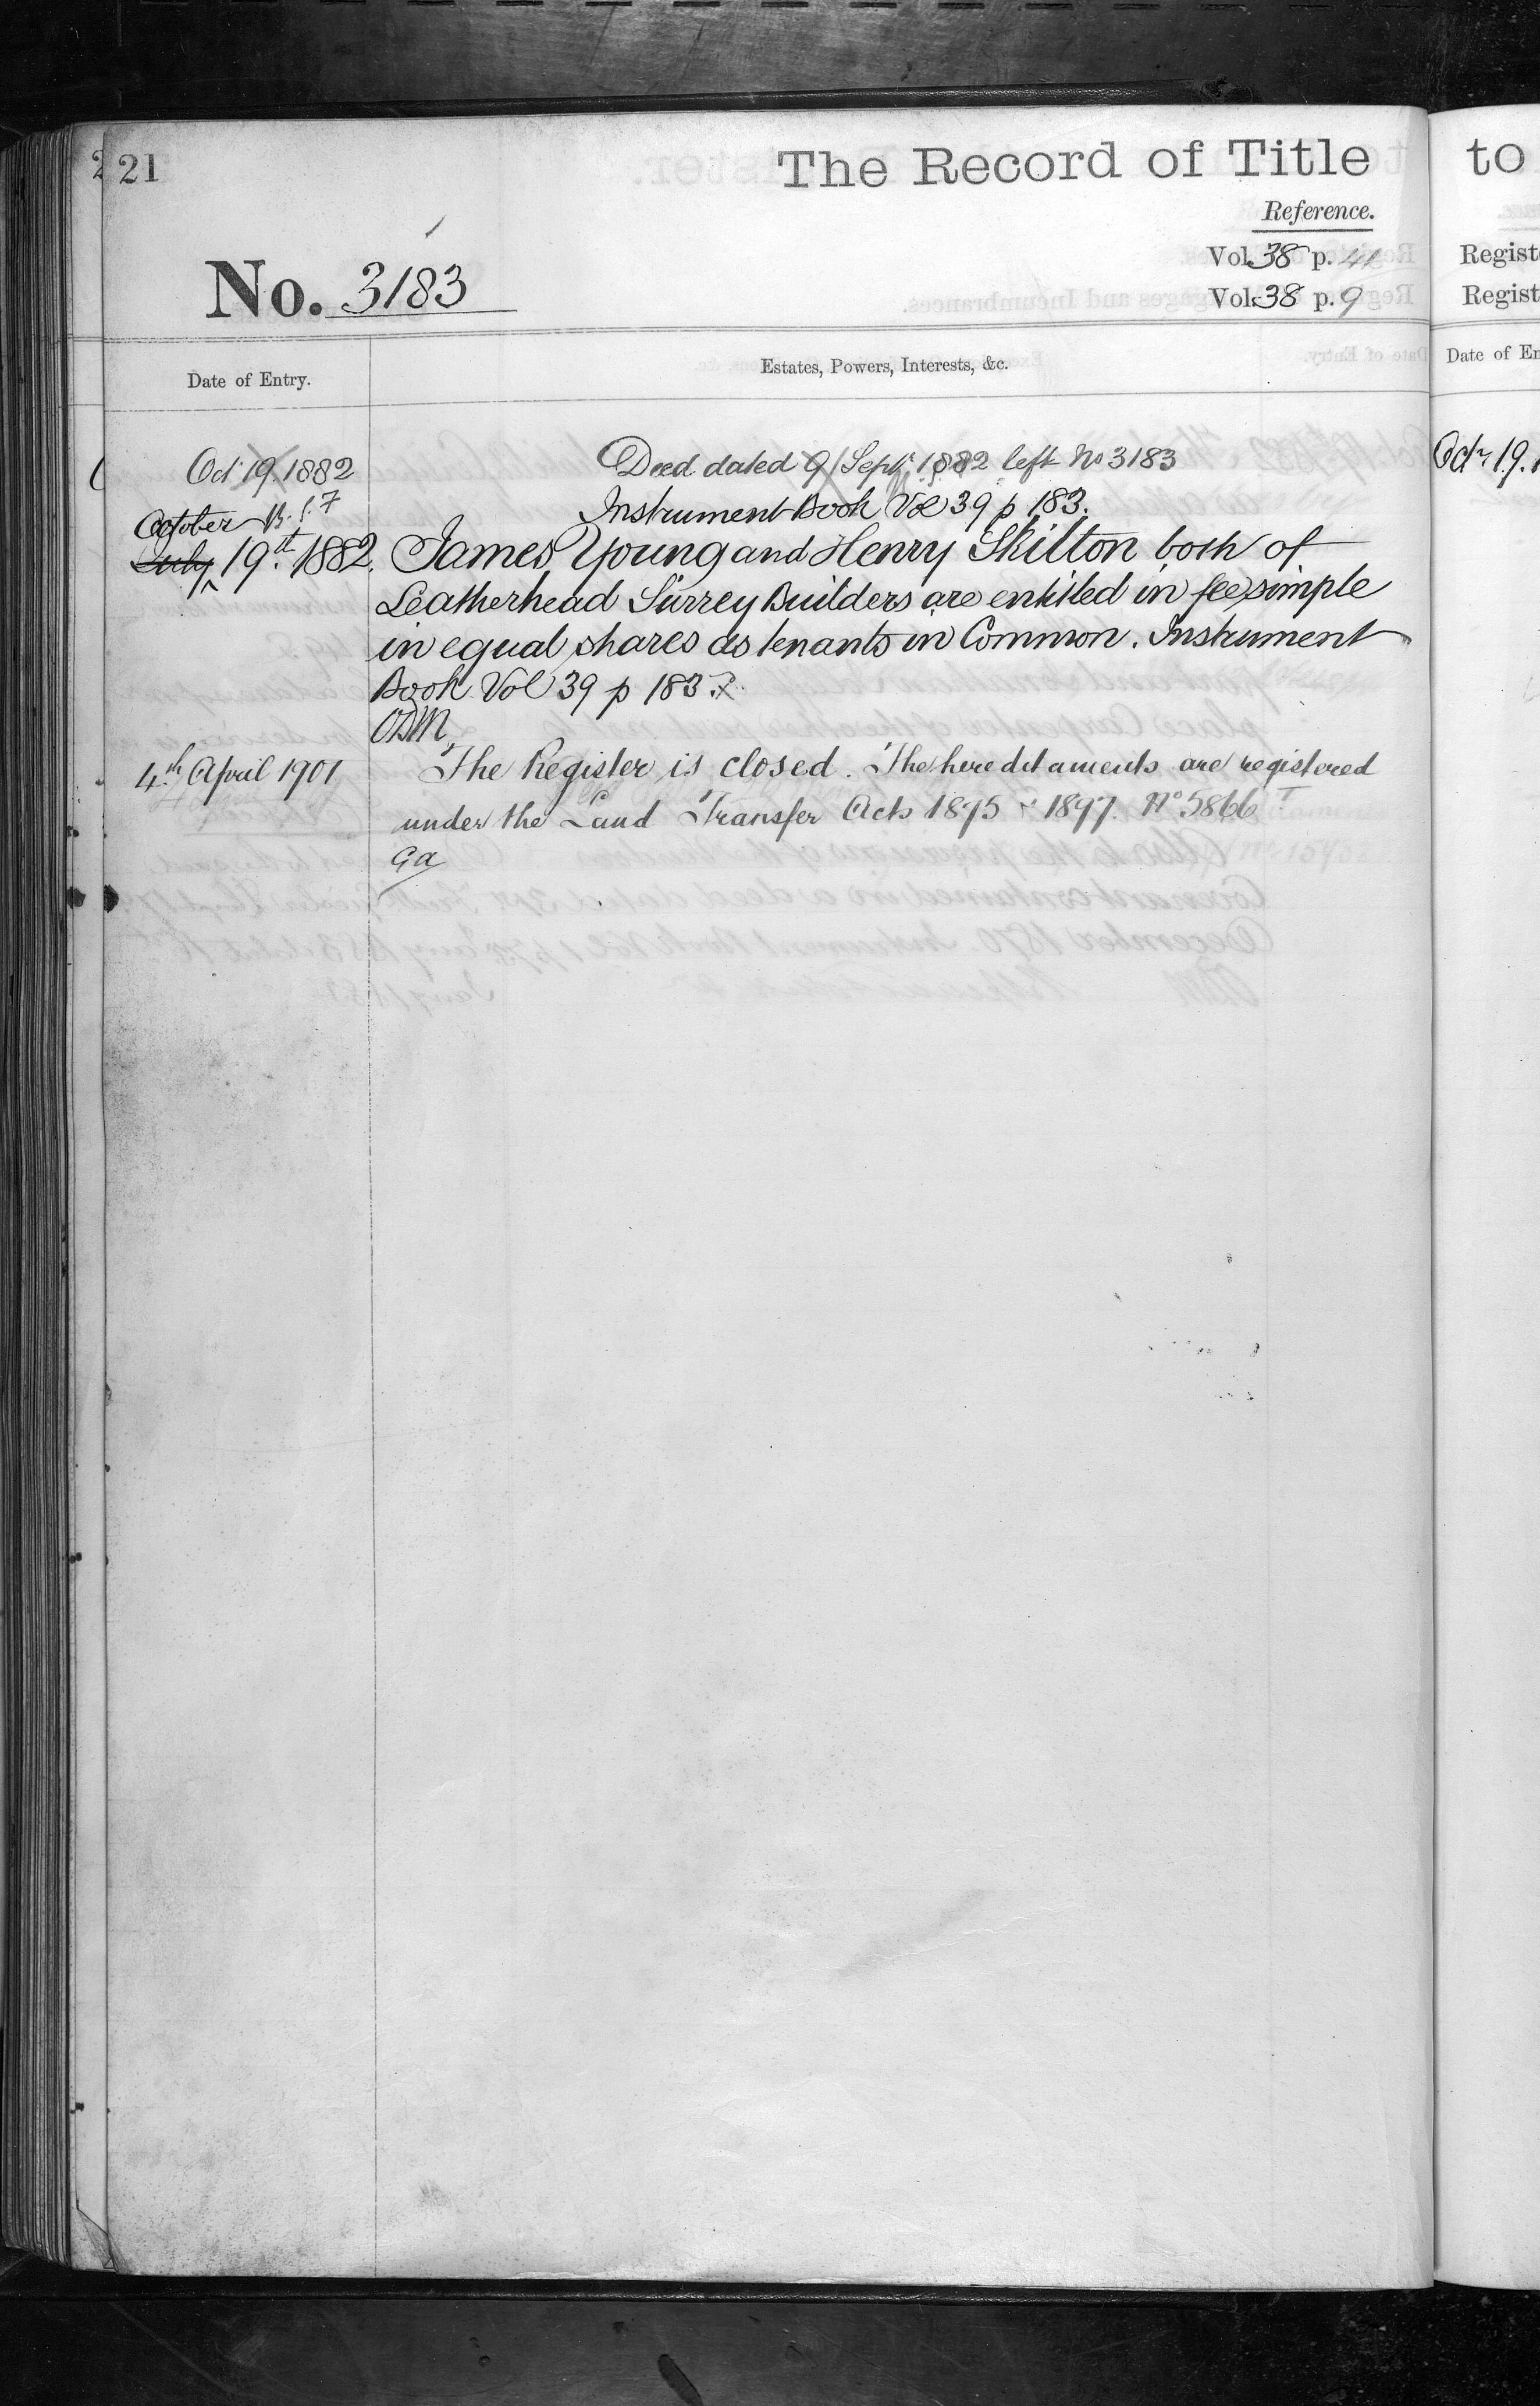 21
The Record of Title
to
Reference.
Vol. 38 p. 41
Regist
No. 3183
Vol. 38 p. 9
Regist
Date of Entry.
Estates, Powers, Interests, &c.
Date of En
Oct 19. 1882
Deed dated 9 Sept 1882 left No 3183
Octr 19. 1
Instrument Book Vol 39 p 183.
October
July 19th 1882. James Young and Henry Skilton both of
Leatherhead Surrey Builders are entitled in fee simple
in equal shares as tenants in Common. Instrument
Book Vol 39 p 183.
ODM
4th April 1901 The Register is closed. The hereditaments are registered
under the Land Transfer Acts 1875 & 1897. No 5866
Ga